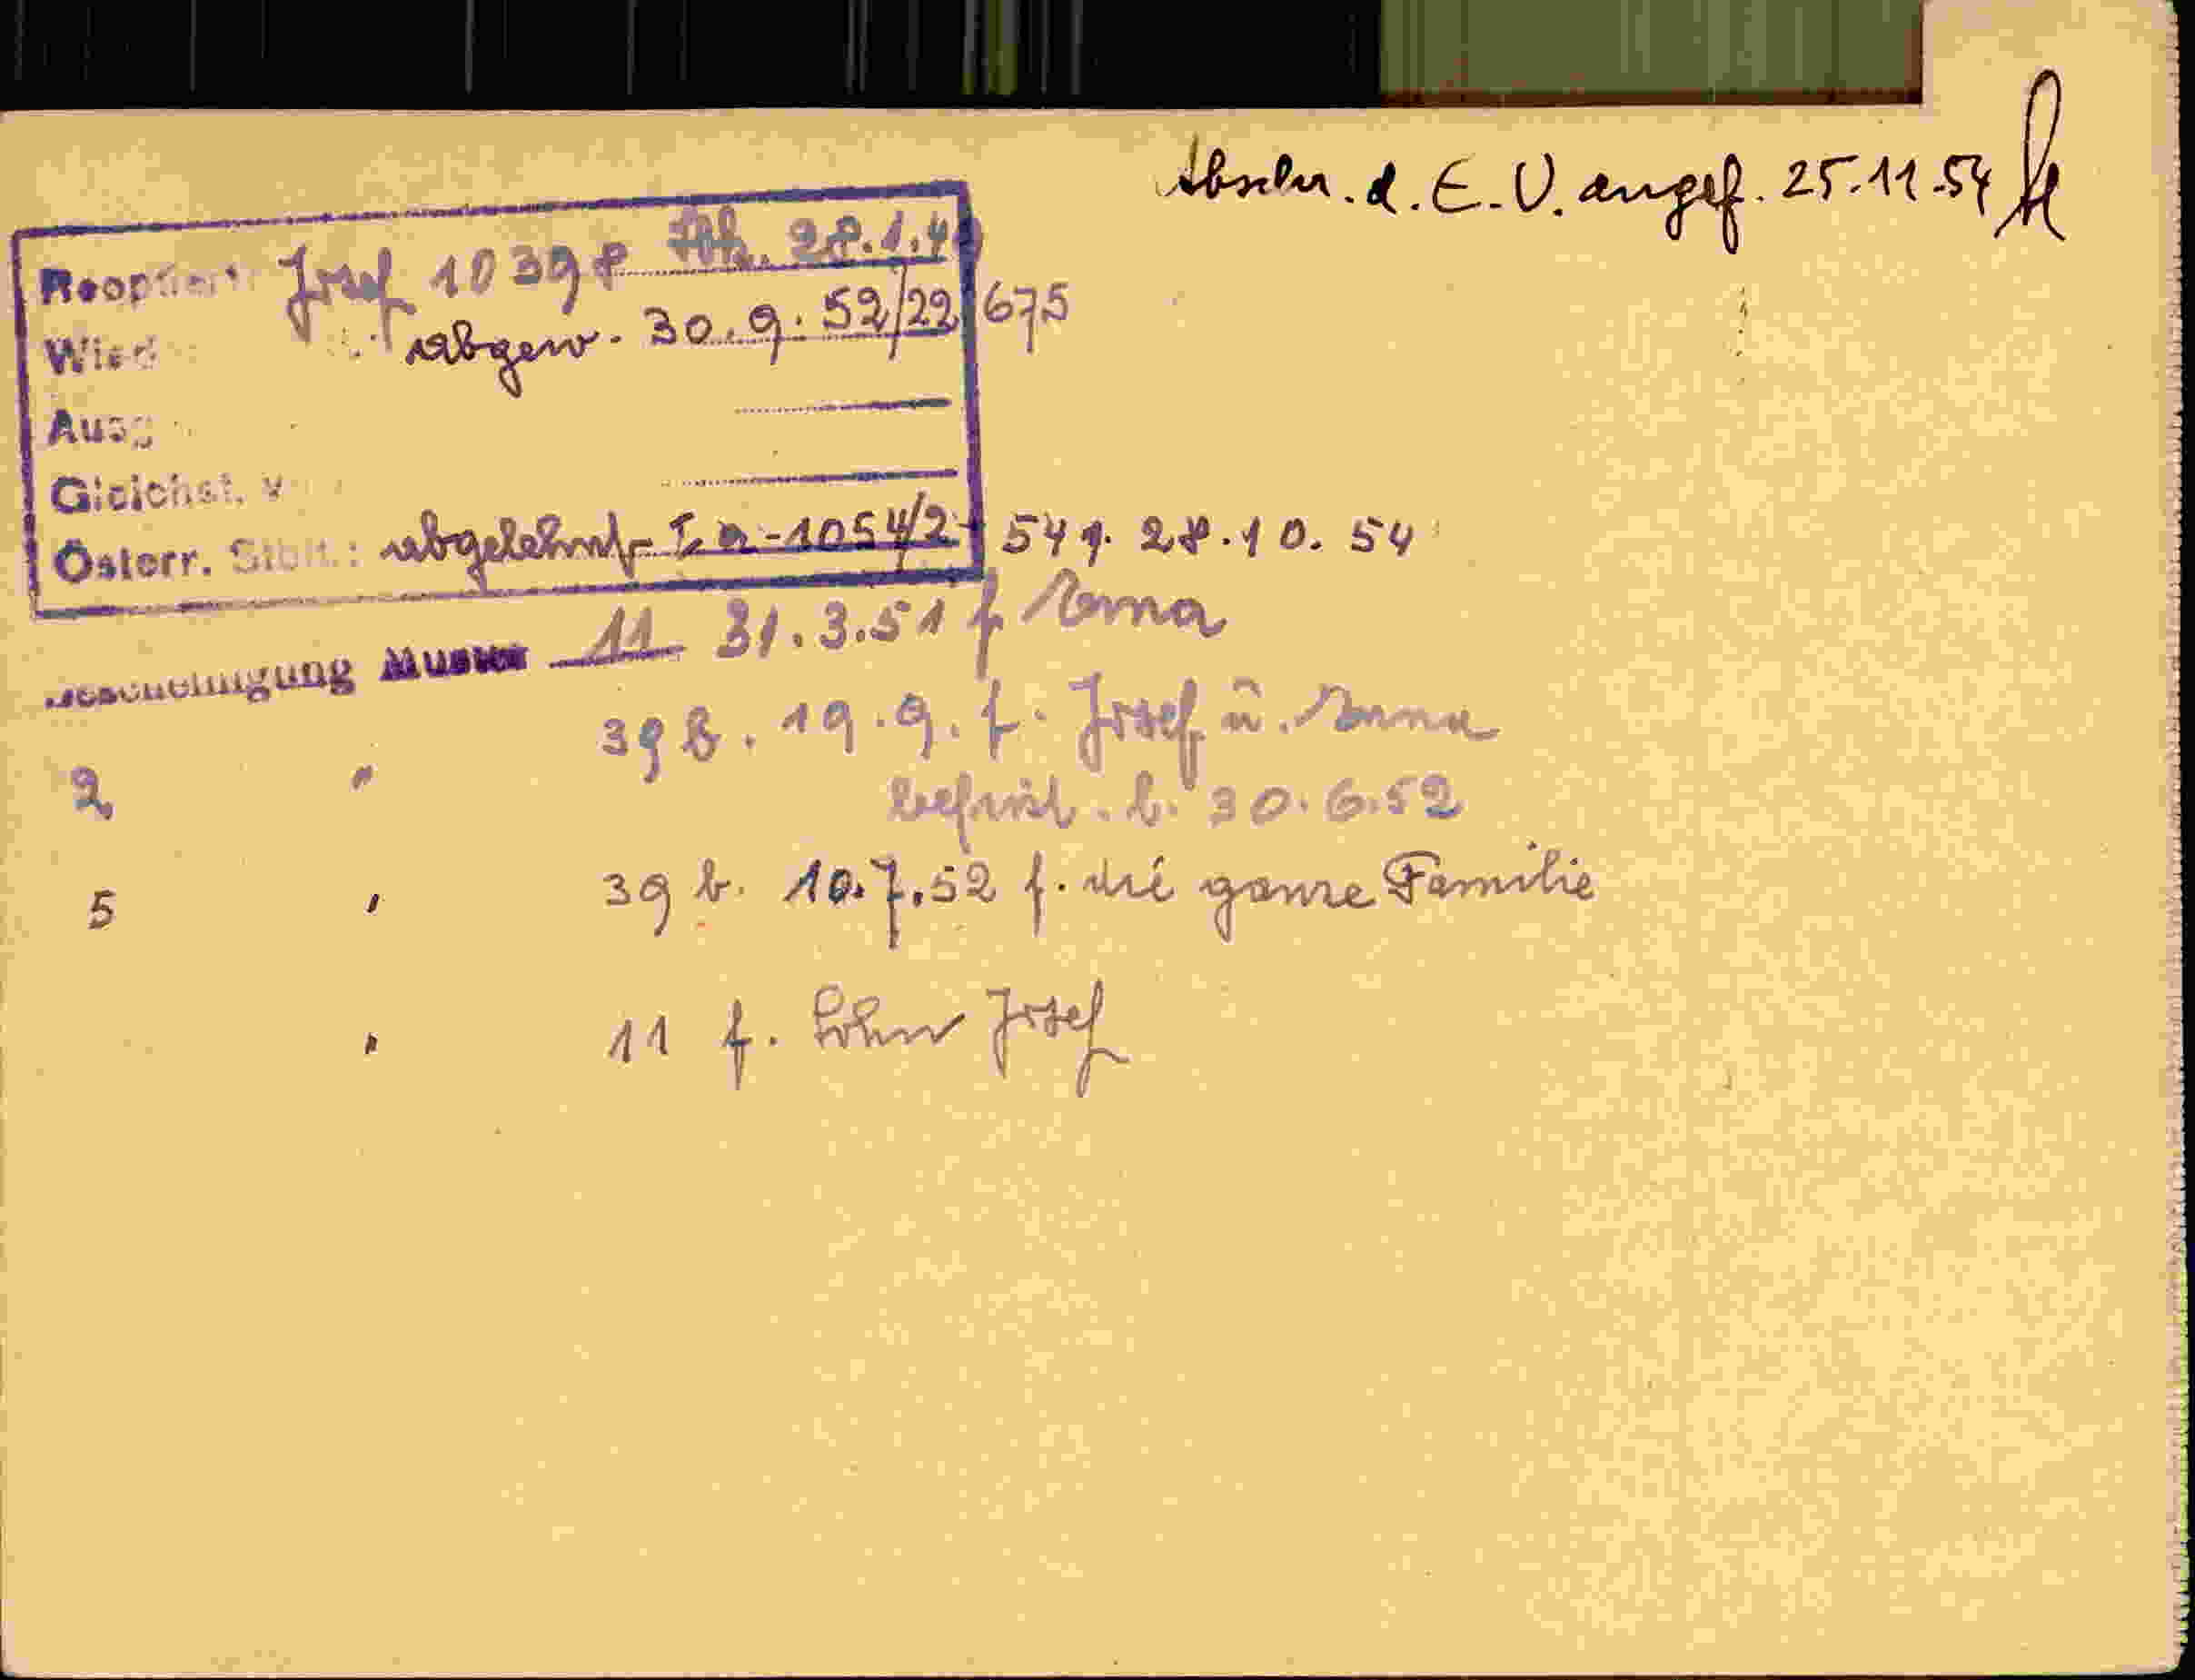 Abschr. d. E. V. angef. 25.11.54
Reoptiert: Josef 10398 28.1.4
Wied abgew. 30.9.52/22 675
Ausg
Gleichst. v
Österr. Stblt.: abgelehnt I a-1054/2- 541. 28.10.54
Bescheinigung Muster 11 31.3.51 f
2 " 39 b. 19.9. f. Josef u.
befrist. b. 30.6.52
5 " 39 b. 10.7.52 f. die ganze Familie
" 11 f. Sohn Josef